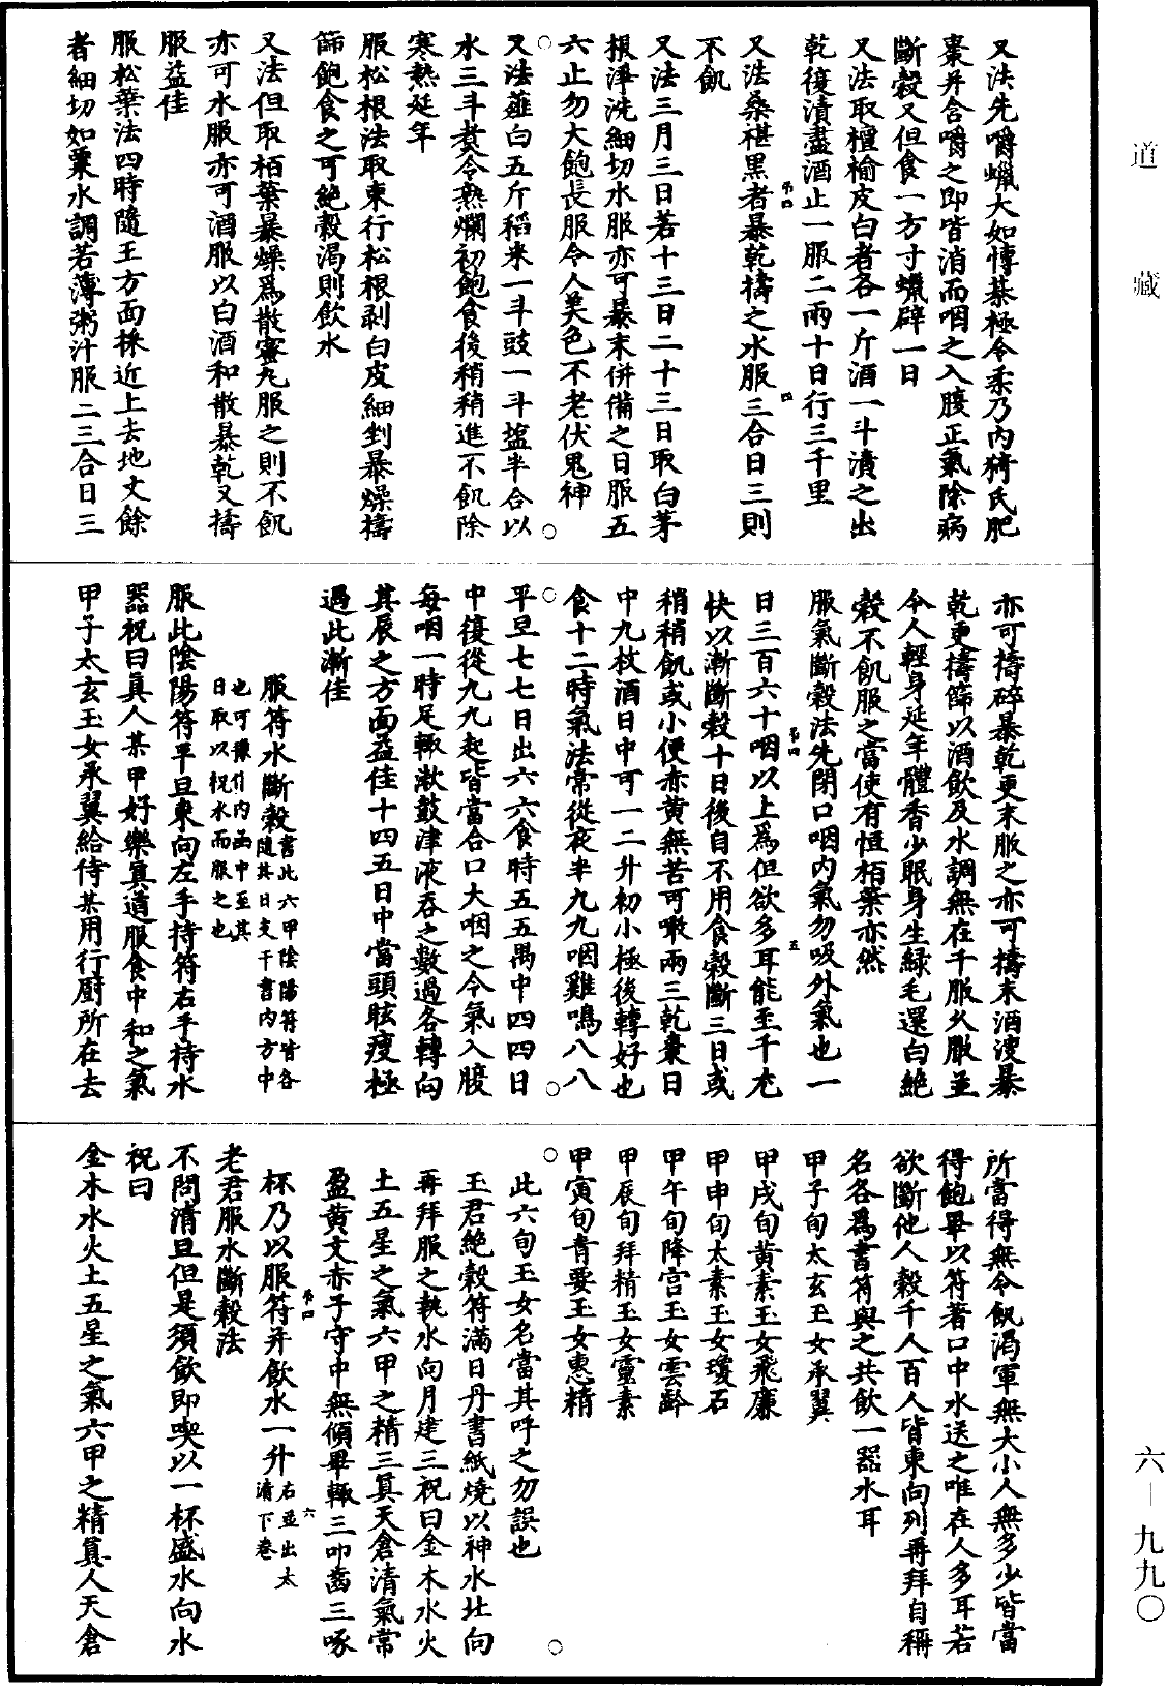 道藏
又法先嚼蠟大如博棊極令柔乃內猗氏肥
棗并含嚼之即皆消而咽之入腹正氣除病
斷穀又但食一方寸蠟辟一日
又法取檀榆皮白者各一斤酒一斗漬之出
乾復漬盡酒止一服二兩十日行三千里
又法桑椹黑者暴乾擣之水服三合日三則
不飢
又法三月三日若十三日二十三日取白茅
根淨洗細切水服亦可暴末併備之日服五
六止勿大飽長服令人美色不老伏鬼神
又法薤白五斤稻米一斗豉一斗鹽半合以
水三斗煮令熟爛初飽食後稍稍進不飢除
寒熱延年
服松根法取東行松根剥白皮細剉暴燥擣
篩飽食之可絶穀渴則飲水
又法但取栢葉暴燥爲散蜜丸服之則不飢
亦可水服亦可酒服以白酒和散暴乾又擣
服益佳
服松葉法四時隨王方面採近上去地丈餘
者細切如粟水調若薄粥汁服二三合日三
亦可擣碎暴乾更末服之亦可擣末酒溲暴
乾更擣篩以酒飲及水調無在千服久服並
令人輕身延年體香少眠身生緑毛還白絶
穀不飢服之當使有恒栢葉亦然
服氣斷穀法先閉口咽内氣勿吸外氣也一
日三百六十咽以上爲但欲多耳能至千尤
快以漸斷穀十日後自不用食穀斷三日或
稍稍飢或小便赤黄無苦可噉兩三乾棗日
中九杖酒日中可一二升初小極後轉好也
食十二時氣法常從夜半九九咽雞鳴八八
平旦七七日出六六食時五五禺中四四日
中復從九九起皆當合口大咽之令氣入腹
每咽一時足輙漱鼓津液吞之數過各轉向
其辰之方面益佳十四五日中當頭眩痩極
過此漸佳
服符水斷穀書此六甲陰陽符皆各
隨其日支干書内方中
也可豫作内函中至其
日取以祝水而服之也
服此陰陽符平旦東向左手持符右手持水
器祝曰眞人某甲好樂眞道服食中和之氣
甲子太玄玉女承翼給侍某用行厨所在去
所當得無令飢渴軍無大小人無多少皆當
得飽畢以符著口中水送之唯在人多耳若
欲斷他人穀千人百人皆東向列再拜自稱
名各爲書符與之共飲一器水耳
甲子旬太玄玉女承翼
甲戌旬黄素玉女飛廉
甲申旬太素玉女瓊石
甲午旬降宫玉女雲齡
甲辰旬拜精玉女靈素
甲寅旬青要玉女惠精
此六旬玉女名當其呼之勿誤也
王君絶穀符滿日丹書紙燒以神水北向
再拜服之執水向月建三祝曰金木水火
土五星之氣六甲之精三眞天倉清氣常
盈黄文赤子守中無傾畢輙三叩齒三啄
杯乃以服符并飲水一升右並出太
清下卷
老君服水斷穀法
不問清旦但是須飲即喫以一杯盛水向水
祝曰
金木水火土五星之氣六甲之精眞人天倉
六—九九〇